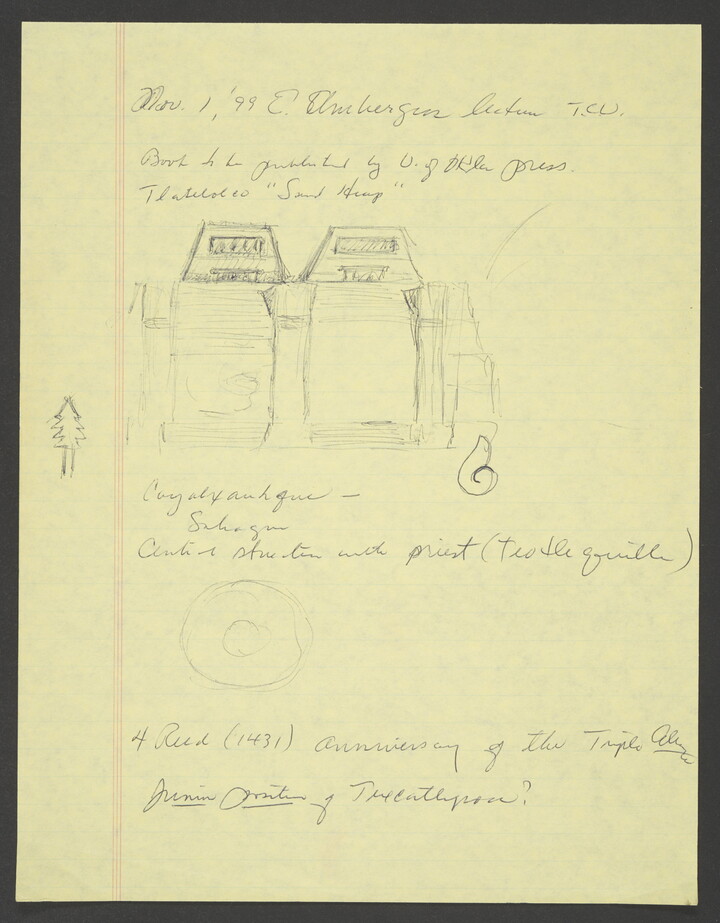 Nov. 1, '99 E. Umberger lecture T.C.U.
Book to be published by U. of Okla press.
Tlatelolco "Sand Heap"
Coyolxauhqui —
Sahagun
Central structure with priest (Teotlequilla)
4 Reed (1431) anniversary of the Triple
position of Tezcatlipoca?